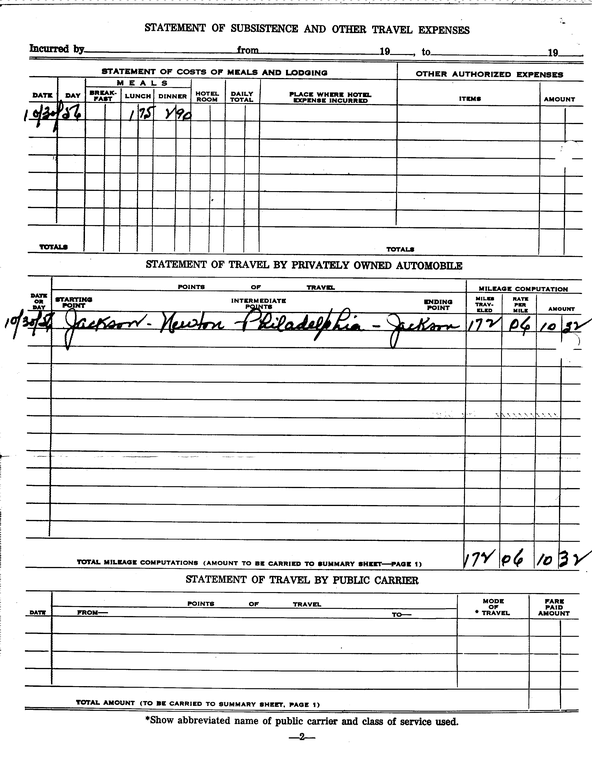 STATEMENT OF SUBSISTENCE AND OTHER TRAVEL EXPENSES
Incurred by from 19 , to 19
STATEMENT OF COSTS OF MEALS AND LODGING OTHER AUTHORIZED EXPENSES
MEALS
DATE DAY BREAK-FAST LUNCH DINNER HOTEL ROOM DAILY TOTAL PLACE WHERE HOTEL EXPENSE INCURRED ITEMS AMOUNT
10/30/56 1 75 2 90
TOTALS TOTALS
STATEMENT OF TRAVEL BY PRIVATELY OWNED AUTOMOBILE
POINTS OF TRAVEL MILEAGE COMPUTATION
DATE OR DAY STARTING POINT INTERMEDIATE POINTS ENDING POINT MILES TRAV-ELED RATE PER MILE AMOUNT
10/30/56 Jackson - Newton - Philadelphia - Jackson 172 06 10 32
TOTAL MILEAGE COMPUTATIONS (AMOUNT TO BE CARRIED TO SUMMARY SHEET—PAGE 1) 172 06 10 32
STATEMENT OF TRAVEL BY PUBLIC CARRIER
POINTS OF TRAVEL MODE OF * TRAVEL FARE PAID AMOUNT
DATE FROM— TO—
TOTAL AMOUNT (TO BE CARRIED TO SUMMARY SHEET, PAGE 1)
*Show abbreviated name of public carrier and class of service used.
—2—